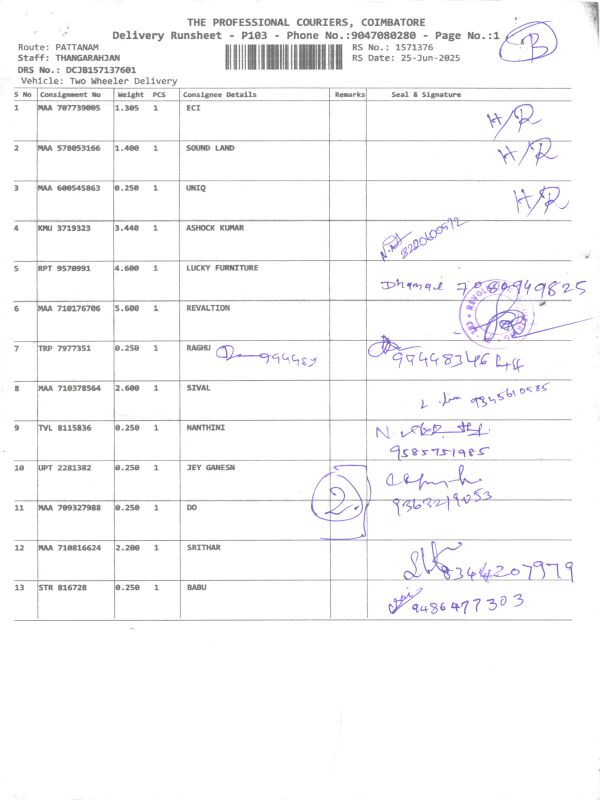 THE PROFESSIONAL COURIERS, COIMBATORE
Delivery Runsheet - P103 - Phone No.:9047080280 - Page No.:1
B
Route: PATTANAM
RS No.: 1571376
Staff: THANGARAHJAN
RS Date: 25-Jun-2025
DRS No.: DCJB157137601
Vehicle: Two Wheeler Delivery
S No Consignment No Weight PCS Consignee Details Remarks Seal & Signature
1 MAA 707739005 1.305 1 ECI H/R
2 MAA 578053166 1.400 1 SOUND LAND H/R
3 MAA 600545863 0.250 1 UNIQ H/R
4 KMU 3719323 3.440 1 ASHOCK KUMAR
5 RPT 9570991 4.600 1 LUCKY FURNITURE 7080949825
6 MAA 710176706 5.600 1 REVALTION
7 TRP 7977351 0.250 1 RAGHU 994483 9944834644
8 MAA 710378564 2.600 1 SIVAL 9345610585
9 TVL 8115836 0.250 1 NANTHINI N.
9585751985
10 UPT 2281382 0.250 1 JEY GANESN
9363219053
2.
11 MAA 709327988 0.250 1 DO
12 MAA 710816624 2.200 1 SRITHAR 8344207979
13 STR 816728 0.250 1 BABU 9486477303